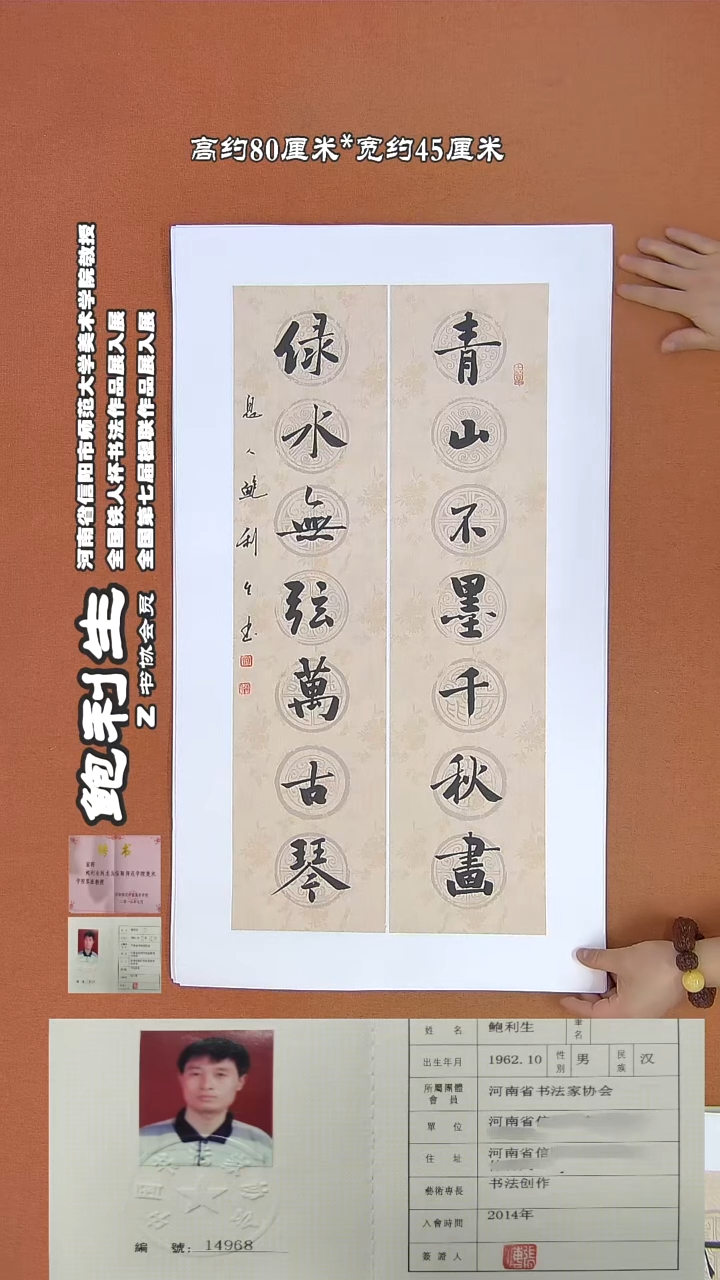 高约80厘米*宽约45厘米
河南省信阳市师范大学美术学院教授
全国铁人杯书法作品展入展
全国第七届楹联作品展入展
鲍利生
Z 书协会员
青山不墨千秋畫
绿水無弦萬古琴
息人鲍利生书
聘书
姓名 鲍利生 筆名
出生年月 1962.10 性别 男 民族 汉
所屬團體會員 河南省书法家协会
單位 河南省信
住址 河南省信
藝術專長 书法创作
入會時間 2014年
簽證人
編號: 14968